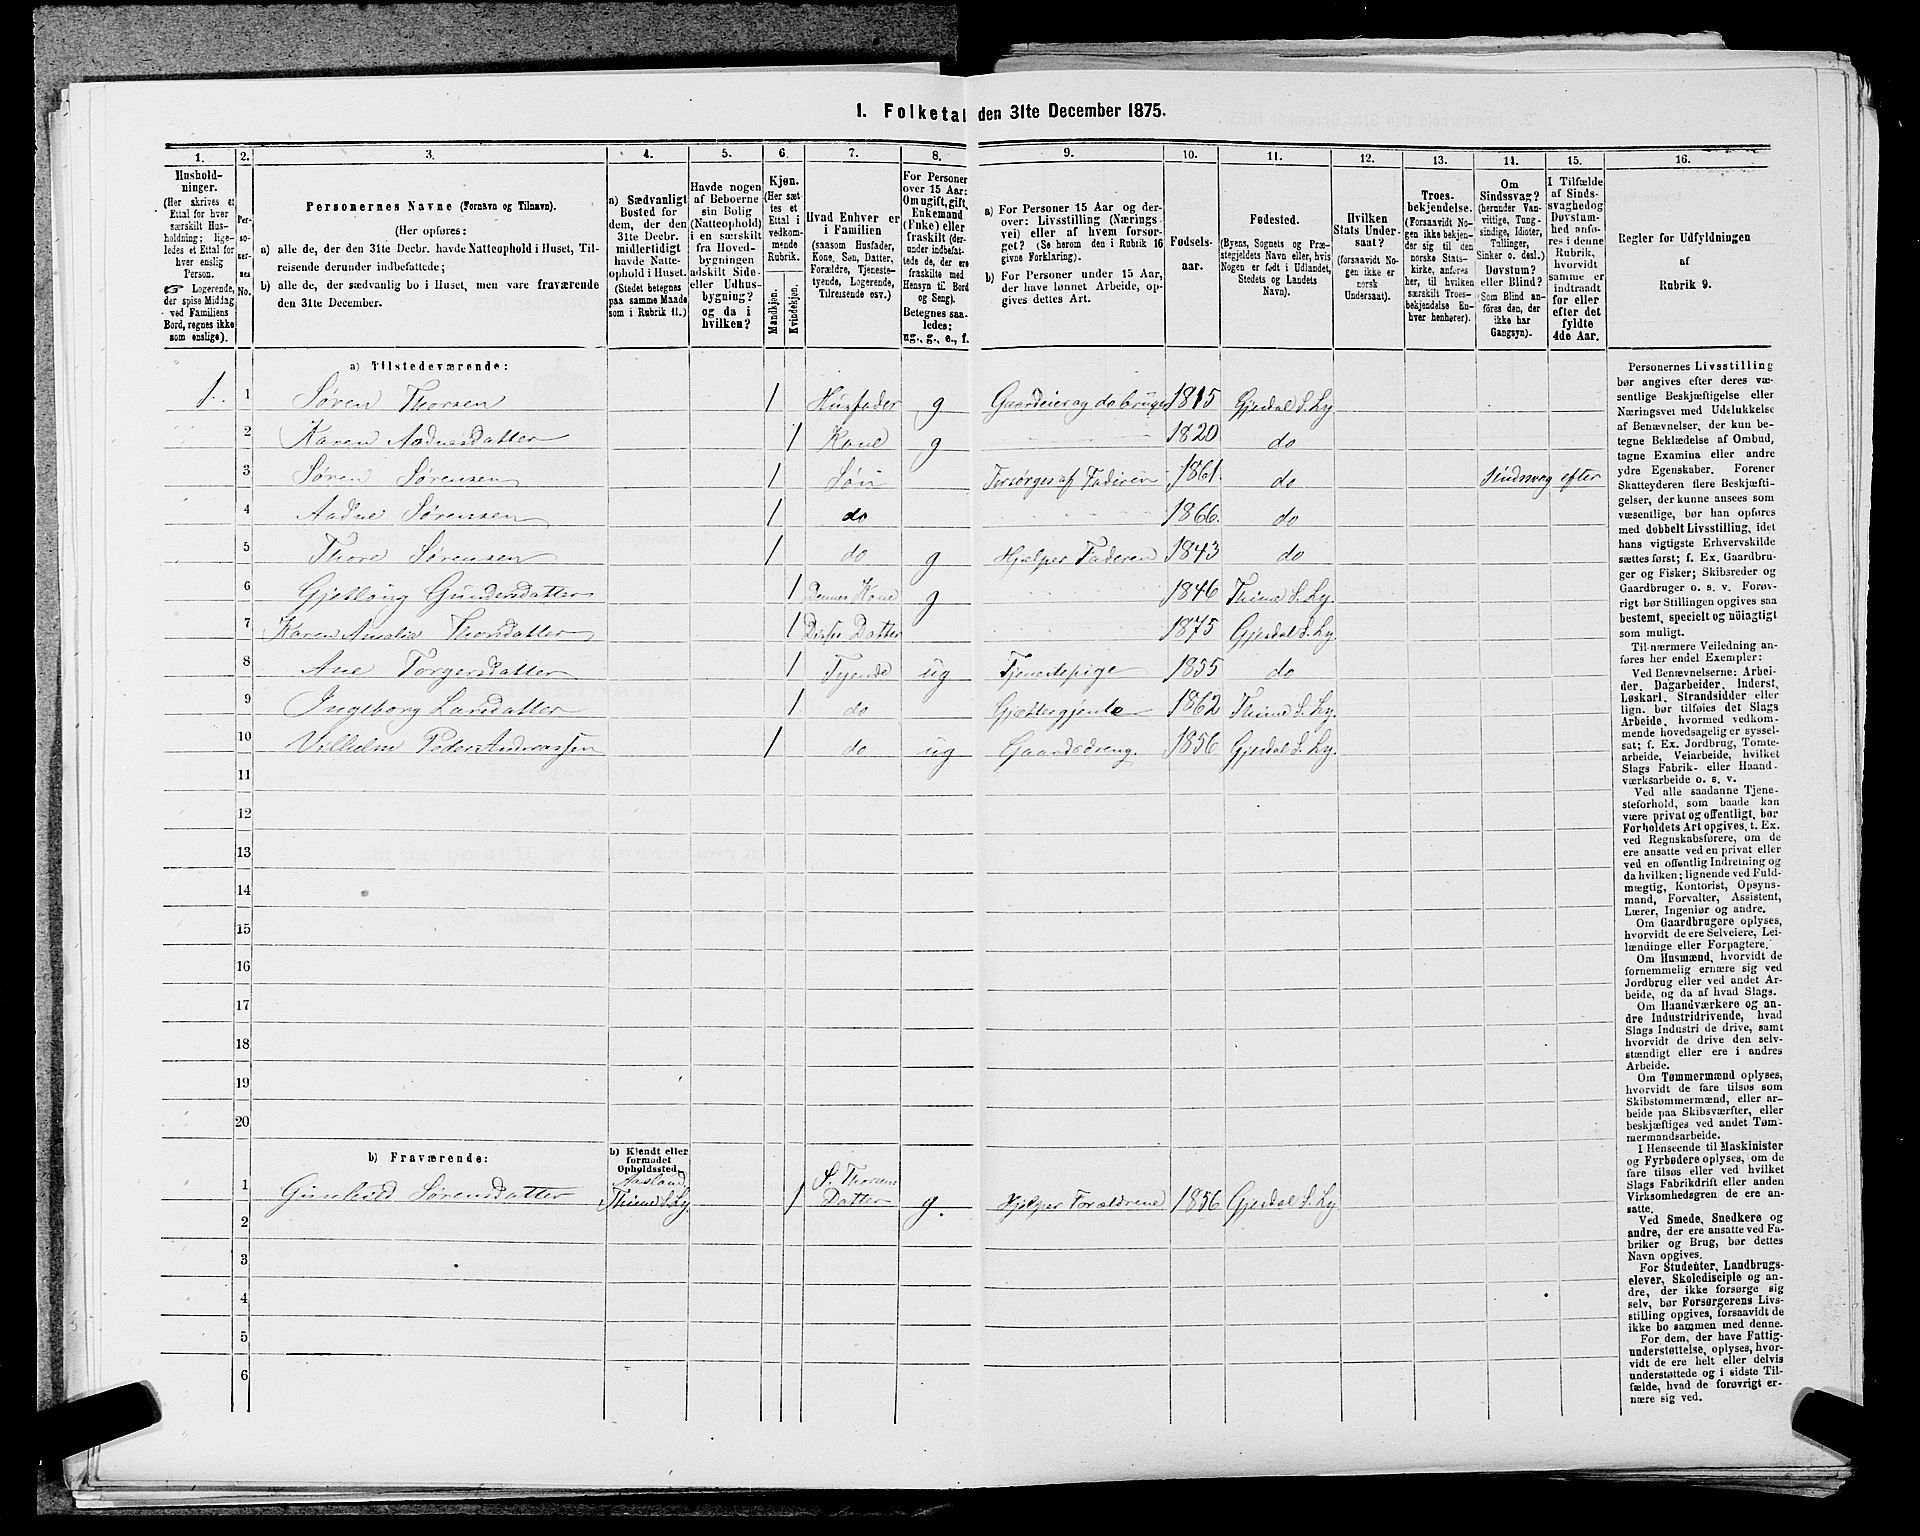 1. Folketal den 31te December 1875.
1. 2. 3. 4. 5. 6. 7. 8. 9. 10. 11. 12. 13. 14. 15. 16.
Hushold-
ninger.
(Her skrives et
Ettal for hver
særskilt Hus-
holdning; lige-
ledes et Ettal for
hver enslig
Person.
☞ Logerende,
der spise Middag
ved Familiens
Bord, regnes ikke
som enslige).
Per-
so-
ner-
nes
No.
Personernes Navne (Fornavn og Tilnavn).
(Her opføres:
a) alle de, der den 31te Decbr. havde Natteophold i Huset, Til-
reisende derunder indbefattede;
b) alle de, der sædvanlig bo i Huset, men vare fraværende
den 31te December.
a) Sædvanligt
Bosted for
dem, der den
31te Decbr.
midlertidigt
havde Natte-
ophold i Huset.
(Stedet betegnes
paa samme Maade
som i Rubrik 11.)
Havde nogen
af Beboerne
sin Bolig
(Natteophold)
i en særskilt
fra Hoved-
bygningen
adskilt Side-
eller Udhus-
bygning?
og da i
hvilken?
Kjøn.
(Her sæt-
tes et
Ettal i
vedkom-
mende
Rubrik.
Mandkjøn.
Kvindekjøn.
Hvad Enhver er
i Familien
(saasom Husfader,
Kone, Søn, Datter,
Forældre, Tjeneste-
tyende, Logerende,
Tilreisende osv.)
For Personer
over 15 Aar:
Om ugift, gift,
Enkemand
(Enke) eller
fraskilt (der-
under indbefat-
tede de, der ere
fraskilte med
Hensyn til Bord
og Seng).
Betegnes saa-
ledes:
ug., g., e., f.
a) For Personer 15 Aar og der-
over: Livsstilling (Nærings
vei) eller af hvem forsør-
get? (Se herom den i Rubrik 16
givne Forklaring).
b) For Personer under 15 Aar,
der have lønnet Arbeide, op-
gives dettes Art.
Fødsels-
aar.
Fødested.
(Byens, Sognets og Præ-
stegjeldets Navn eller, hvis
Nogen er født i Udlandet,
Stedets og Landets
Navn).
Hvilken
Stats Under-
saat?
(forsaavidt No-
gen ikke er
norsk
Undersaat).
Troes-
bekjendelse.
(Forsaavidt No-
gen ikke bekjen-
der sig til den
norske Stats-
kirke, anføres
her, til hvilken
særskilt Troes-
bekjendelse En-
hver henhører).
Om
Sindssvag?
(herunder Van-
vittige, Tung-
sindige, Idioter,
Tullinger,
Sinker o. desl.)
Døvstum?
eller Blind?
(Som Blind an-
føres den, der
ikke har
Gangsyn).
I Tilfælde
af Sinds-
svaghed og
Døvstum-
hed anfø-
res i denne
Rubrik,
hvorvidt
samme er
indtraadt
før eller
efter det
fyldte
4de Aar.
Regler for Udfyldningen
af
Rubrik 9.
a) Tilstedeværende:
1. 1 Søren Thorsen 1 Husfader g Gaardeier og do bruger 1815 Gjesdal S. Ly
2 Karen Aadnesdatter 1 Kone g 1820 do
3 Søren Sørensen 1 Søn Forsørges af Faderen 1861. do Sindsvag efter
4 Aadne Sørensen 1 do 1866. do
5 Thore Sørensen 1 do g Hjelper Faderen 1843 do
6 1 Dennes Kone g 1846 Thime S. Ly.
7 Karen Amalia Thorsdatter 1 Disses Datter 1875 Gjesdal S. Ly.
8 Ane Torgersdatter 1 Tyende ug Tjenestepige 1855 do
9 Ingeborg Larsdatter 1 do Gjættergjente 1862 Thime S. Ly.
10 Vilhelm Peder Andreassen 1 do ug Gaardsdreng. 1856 Gjesdal S. Ly.
11
12
13
14
15
16
17
18
19
20
b) Fraværende:
b) Kjendt eller
formodet
Opholdssted.
1 Gunhild Sørensdatter Aasland Thime S. Ly. 1 S. Thorsens Datter g. Hjelper Forældrene 1856 Gjesdal S. Ly
2
3
4
5
6
Personernes Livsstilling
bør angives efter deres væ-
sentlige Beskjæftigelse eller
Næringsvei med Udelukkelse
af Benævnelser, der kun be-
tegne Beklædelse af Ombud,
tagne Examina eller andre
ydre Egenskaber. Forener
Skatteyderen flere Beskjæfti-
gelser, der kunne ansees som
væsentlige, bør han opføres
med dobbelt Livsstilling, idet
hans vigtigste Erhvervskilde
sættes først; f. Ex. Gaardbru-
ger og Fisker; Skibsreder og
Gaardbruger o. s. v. Forøv-
rigt bør Stillingen opgives saa
bestemt, specielt og nöiagtigt
som muligt.
Til nærmere Veiledning an-
føres her endel Exempler:
Ved Benævnelserne: Arbei-
der, Dagarbeider, Inderst,
Løskarl, Strandsidder eller
lign. bør tilføies det Slags
Arbeide, hvormed vedkom-
mende hovedsagelig er syssel-
sat; f. Ex. Jordbrug, Tomte-
arbeide, Veiarbeide, hvilket
Slags Fabrik- eller Haand-
værksarbeide o. s. v.
Ved alle saadanne Tjene-
steforhold, som baade kan
være privat og offentligt, bør
Forholdets Art opgives, t. Ex.
ved Regnskabsførere, om de
ere ansatte ved en privat eller
ved en offentlig Indretning og
da hvilken; lignende ved Fuld-
mægtig, Kontorist, Opsyns-
mand, Forvalter, Assistent,
Lærer, Ingeniør og andre.
Om Gaardbrugere oplyses,
hvorvidt de ere Selveiere, Lei-
lændinge eller Forpagtere.
Om Husmænd, hvorvidt de
fornemmelig ernære sig ved
Jordbrug eller ved andet Ar-
beide, og da af hvad Slags.
Om Haandværkere og an-
dre Industridrivende, hvad
Slags Industri de drive, samt
hvorvidt de drive den selv-
stændigt eller ere i andres
Arbeide.
Om Tømmermænd oplyses,
hvorvidt de fare tilsøs som
Skibstømmermænd, eller ar-
beide paa Skibsværfter, eller
beskjæftiges ved andet Tøm-
mermandsarbeide.
I Henseende til Maskinister
og Fyrbødere oplyses, om de
fare tilsøs eller ved hvilket
Slags Fabrikdrift eller anden
Virksomhedsgren de ere an-
satte.
Ved Smede, Snedkere og
andre, der ere ansatte ved Fa-
briker og Brug, bør dettes
Navn opgives.
For Studenter, Landbrugs-
elever, Skoledisciple og an-
dre, der ikke forsørge sig
selv, bør Forsørgerens Livs-
stilling opgives, forsaavidt de
ikke bo sammen med denne.
For dem, der have Fattig-
understøttelse, oplyses, hvor-
vidt de ere helt eller delvis
understøttede og i sidste Til-
fælde, hvad de forøvrigt er-
nære sig ved.